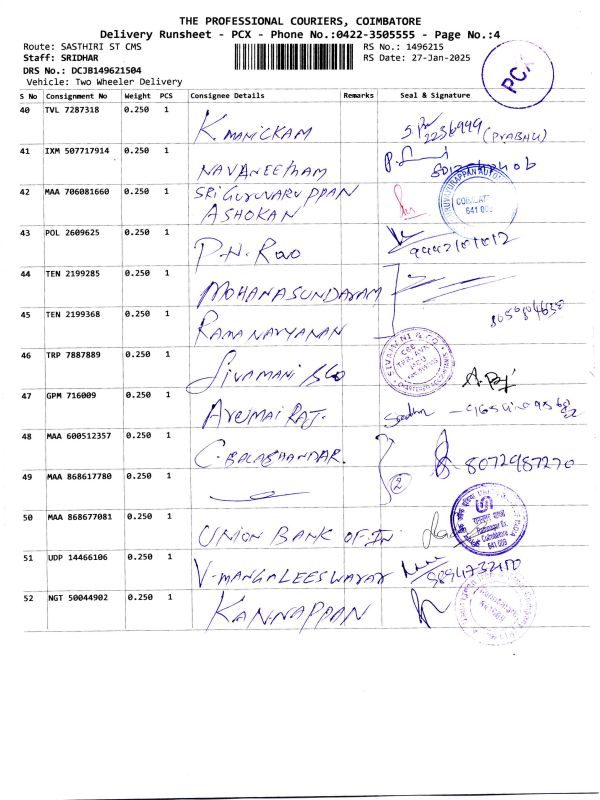 THE PROFESSIONAL COURIERS, COIMBATORE
Delivery Runsheet - PCX - Phone No.:0422-3505555 - Page No.:4
Route: SASTHIRI ST CMS RS No.: 1496215
Staff: SRIDHAR RS Date: 27-Jan-2025
DRS No.: DCJB149621504
Vehicle: Two Wheeler Delivery
PCX
S No Consignment No Weight PCS Consignee Details Remarks Seal & Signature
40 TVL 7287318 0.250 1 K. MANICKAM 2236999 (PRABHU)
41 IXM 507717914 0.250 1 NAVANEETHAM
42 MAA 706081660 0.250 1 SRI GURUVARUPPAN
ASHOKAN
COIMBATORE
641 009
43 POL 2609625 0.250 1 P.H. Rao
44 TEN 2199285 0.250 1 MOHANASUNDARAM
45 TEN 2199368 0.250 1 RAMANARYANAN
46 TRP 7887889 0.250 1 SIVAMANI & CO
47 GPM 716009 0.250 1 ARUMAI RAJ.
48 MAA 600512357 0.250 1 C. BALACHANDAR. 8072987270
49 MAA 868617780 0.250 1 2
50 MAA 868677081 0.250 1 UNION BANK OF IN
51 UDP 14466106 0.250 1 V. MANGALEESWARAR 9894732100
52 NGT 50044902 0.250 1 KANNAPPAN